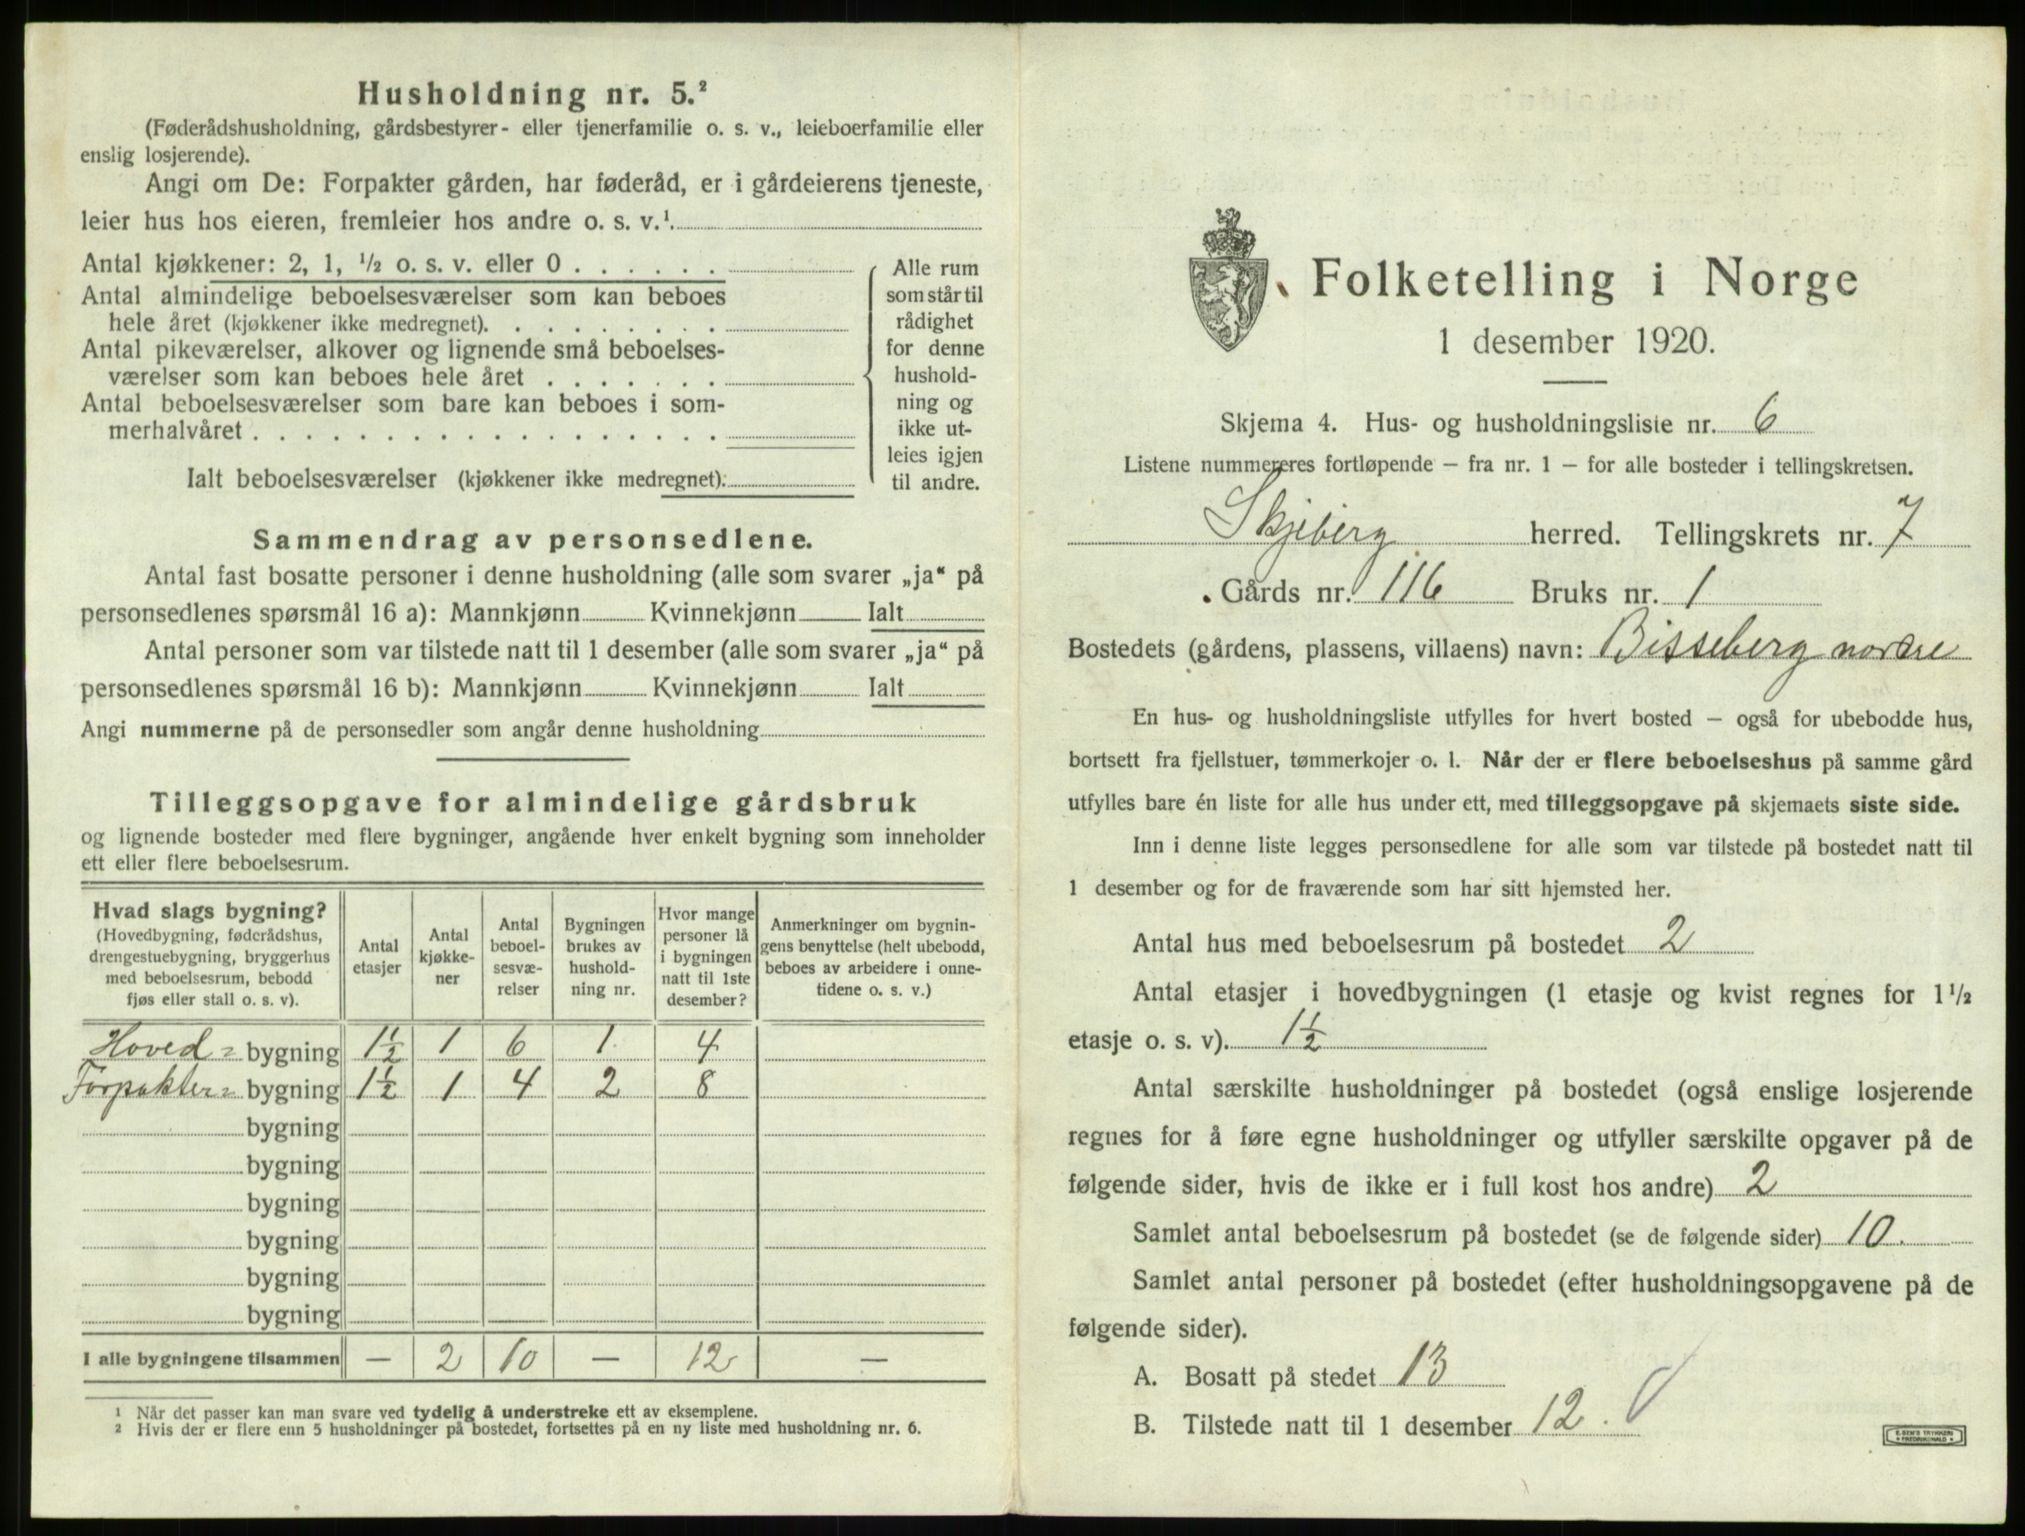 Husholdning nr. 5.²
(Føderådshusholdning, gårdsbestyrer- eller tjenerfamilie o. s. v., leieboerfamilie eller
enslig losjerende).
Angi om De: Forpakter gården, har føderåd, er i gårdeierens tjeneste,
leier hus hos eieren, fremleier hos andre o. s. v.¹.
Antal kjøkkener: 2, 1, ½ o. s. v. eller 0 . . . . . .
Antal almindelige beboelsesværelser som kan beboes
hele året (kjøkkener ikke medregnet). . . . . . . . .
Antal pikeværelser, alkover og lignende små beboelses-
værelser som kan beboes hele året . . . . . . .
Antal beboelsesværelser som bare kan beboes i som-
merhalvåret . . . . . . . . . . . . . . . . . .
Ialt beboelsesværelser (kjøkkener ikke medregnet).
Alle rum
som står til
rådighet
for denne
hushold-
ning og
ikke ut-
leies igjen
til andre.
Sammendrag av personsedlene.
Antal fast bosatte personer i denne husholdning (alle som svarer „ja“ på
personsedlenes spørsmål 16 a): Mannkjønn Kvinnekjønn Ialt
Antal personer som var tilstede natt til 1 desember (alle som svarer „ja“ på
personsedlenes spørsmål 16 b): Mannkjønn Kvinnekjønn Ialt
Angi nummerne på de personsedler som angår denne husholdning
Tilleggsopgave for almindelige gårdsbruk
og lignende bosteder med flere bygninger, angående hver enkelt bygning som inneholder
ett eller flere beboelsesrum.
Hvad slags bygning?
(Hovedbygning, føderådshus,
drengestuebygning, bryggerhus
med beboelsesrum, bebodd
fjøs eller stall o. s. v).
Antal
etasjer
Antal
kjøkke-
ner
Antal
beboel-
sesvæ-
relser
Bygningen
brukes av
hushold-
ning nr.
Hvor mange
personer lå
i bygningen
natt til 1ste
desember?
Anmerkninger om bygnin-
gens benyttelse (helt ubebodd,
beboes av arbeidere i onne-
tidene o. s. v.)
Hoved= bygning 1½ 1 6 1 4
Forpakter= bygning 1½ 1 4 2 8
bygning
bygning
bygning
bygning
bygning
bygning
I alle bygningene tilsammen — 2 10 — 12 —
¹ Når det passer kan man svare ved tydelig å understreke ett av eksemplene.
² Hvis der er flere enn 5 husholdninger på bostedet, fortsettes på en ny liste med husholdning nr. 6.
Folketelling i Norge
1 desember 1920.
Skjema 4. Hus- og husholdningsliste nr. 6
Listene nummereres fortløpende – fra nr. 1 – for alle bosteder i tellingskretsen.
Skjeberg herred. Tellingskrets nr. 7
Gårds nr. 116 Bruks nr. 1
Bostedets (gårdens, plassens, villaens) navn: Bisseberg nordre
En hus- og husholdningsliste utfylles for hvert bosted – også for ubebodde hus,
bortsett fra fjellstuer, tømmerkojer o. l. Når der er flere beboelseshus på samme gård
utfylles bare én liste for alle hus under ett, med tilleggsopgave på skjemaets siste side.
Inn i denne liste legges personsedlene for alle som var tilstede på bostedet natt til
1 desember og for de fraværende som har sitt hjemsted her.
Antal hus med beboelsesrum på bostedet 2
Antal etasjer i hovedbygningen (1 etasje og kvist regnes for 1½
etasje o. s. v). 1½
Antal særskilte husholdninger på bostedet (også enslige losjerende
regnes for å føre egne husholdninger og utfyller særskilte opgaver på de
følgende sider, hvis de ikke er i full kost hos andre) 2
Samlet antal beboelsesrum på bostedet (se de følgende sider) 10.
Samlet antal personer på bostedet (efter husholdningsopgavene på de
følgende sider).
A. Bosatt på stedet 13
B. Tilstede natt til 1 desember 12.